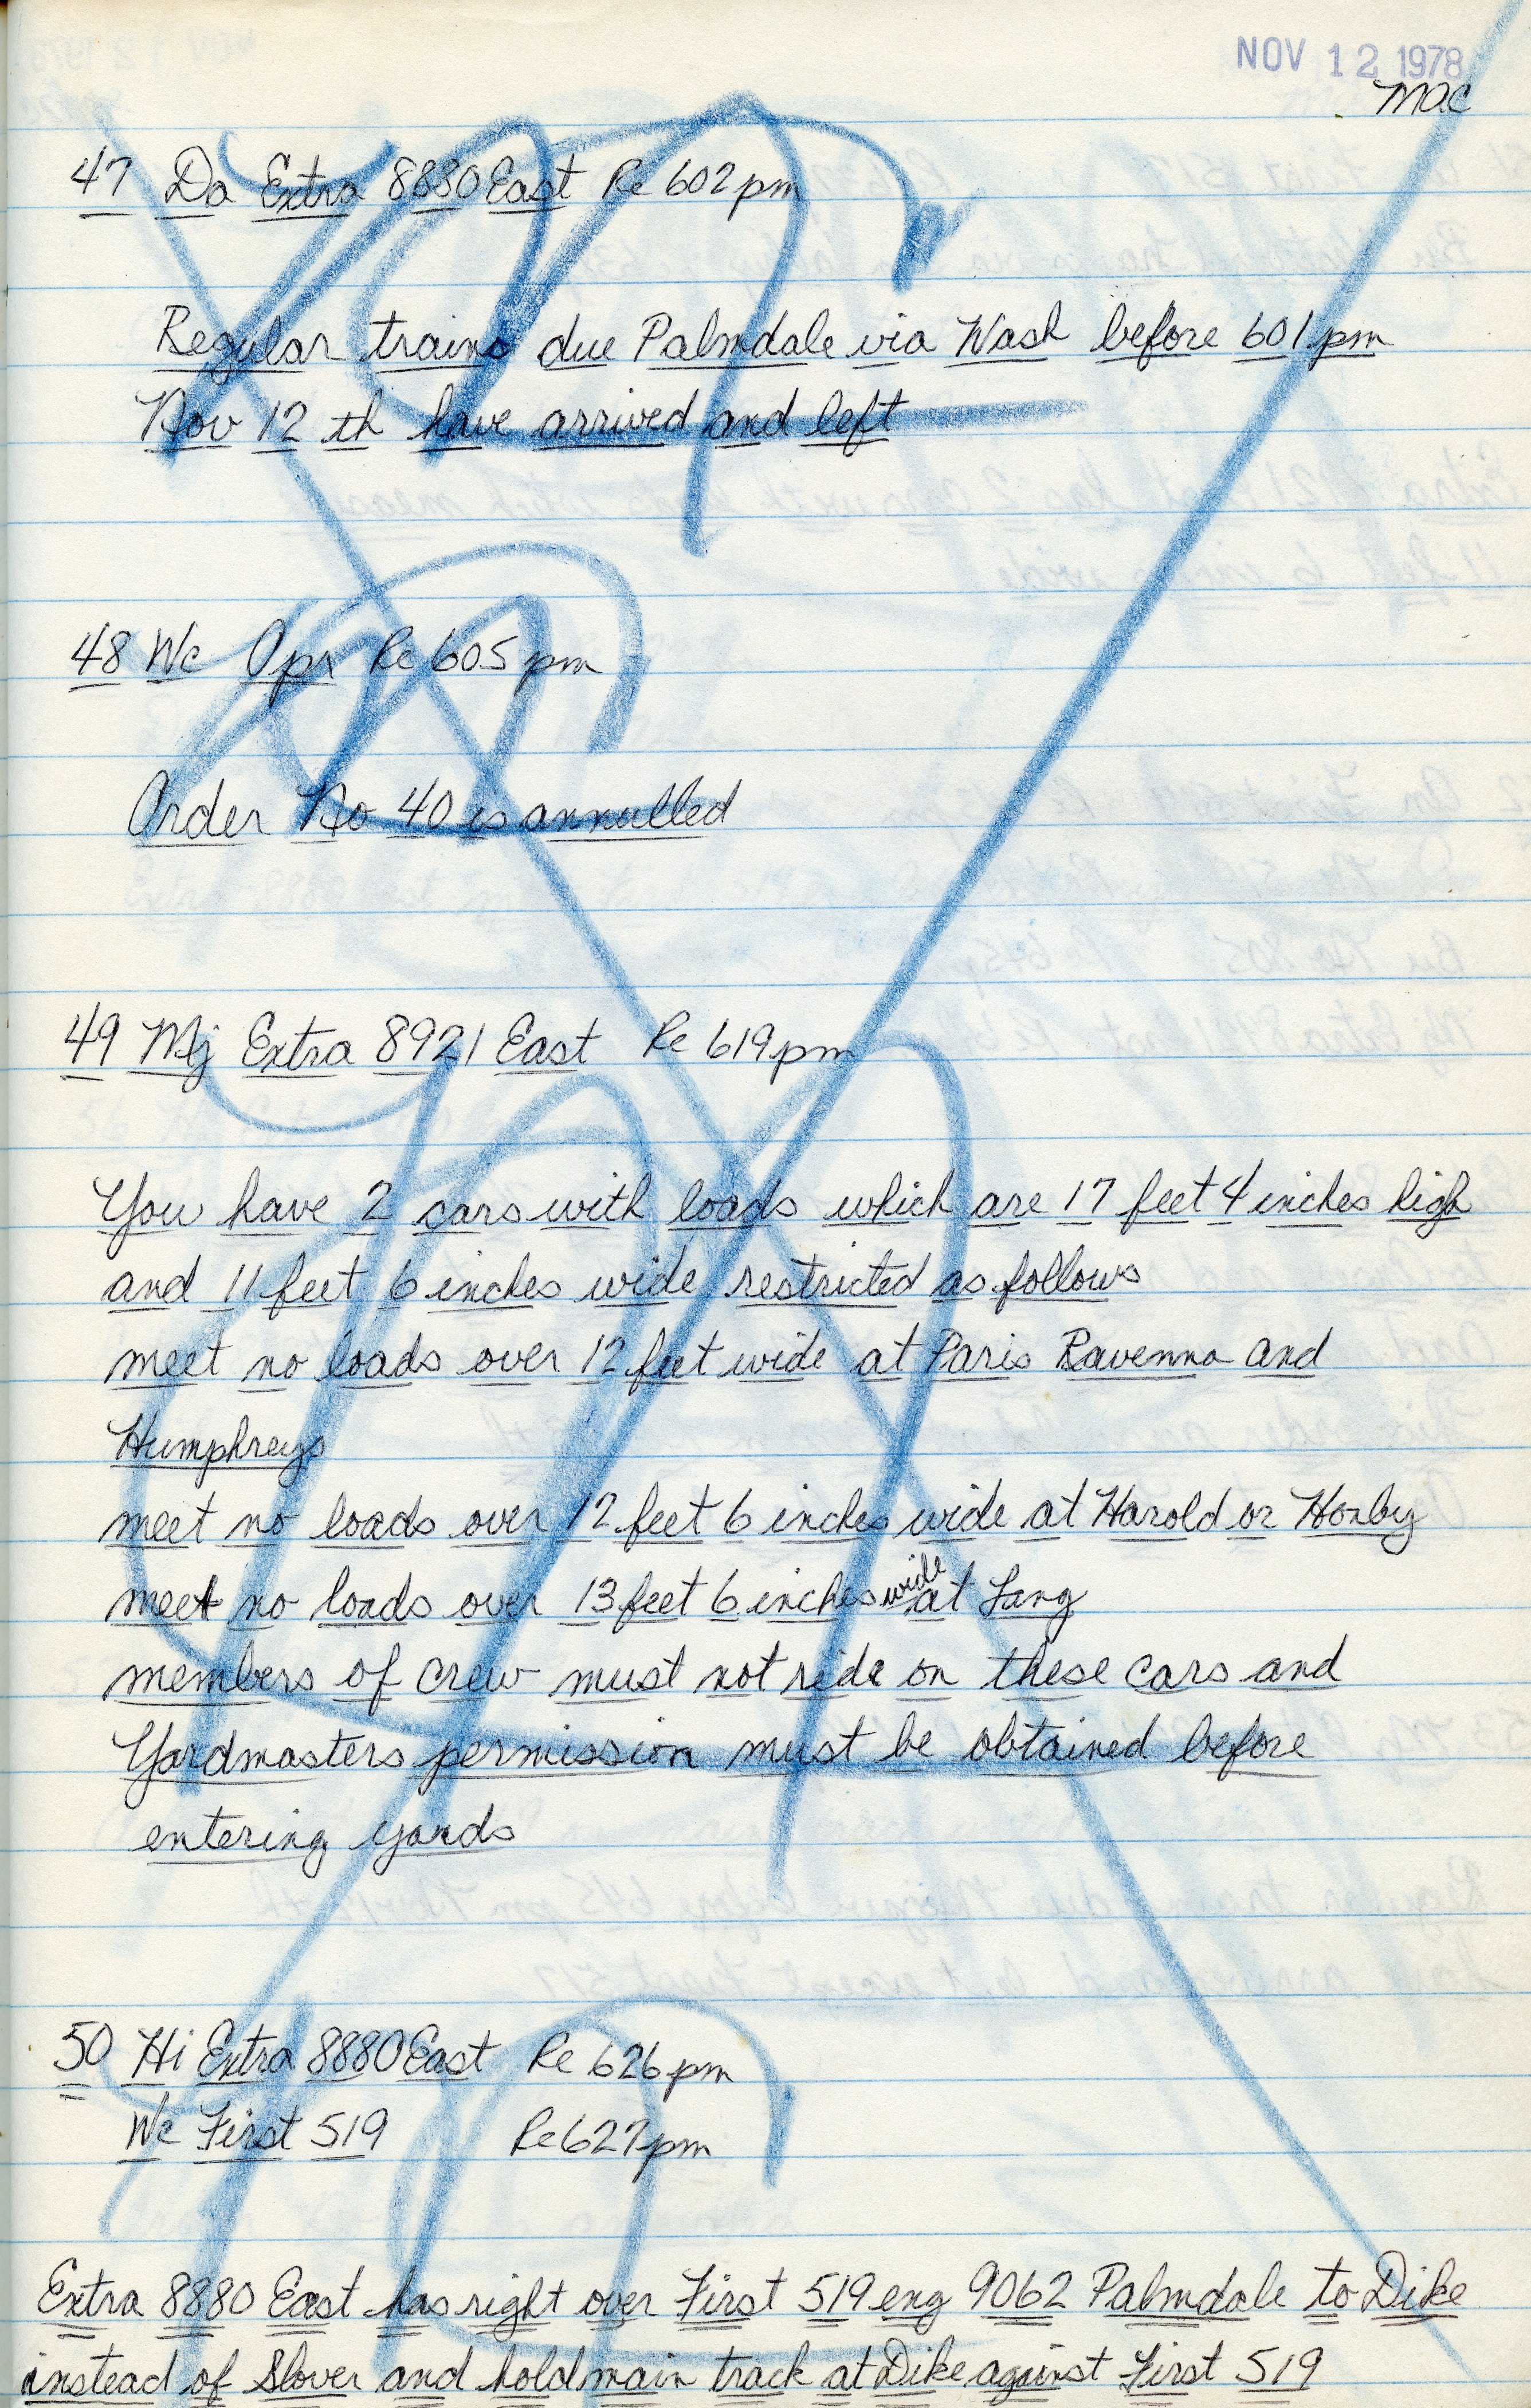 NOV 12 1978
mac
47 Da Extra 8880 East Re 602 pm
Regular trains due Palmdale via Wash before 601 pm
Nov 12 th have arrived and left
48 Wc Opr Re 605 pm
Order No 40 is annulled
49 Mj Extra 8921 East Re 619 pm
You have 2 cars with loads which are 17 feet 4 inches high
and 11 feet 6 inches wide restricted as follows
meet no loads over 12 feet wide at Paris Ravenna and
Humphreys
meet no loads over 12 feet 6 inches wide at Harold or Honby
meet no loads over 13 feet 6 inches wide at Lang
members of crew must not ride on these cars and
Yardmasters permission must be obtained before
entering yards
50 Hi Extra 8880 East Re 626 pm
Wc First 519 Re 627 pm
Extra 8880 East has right over First 519 eng 9062 Palmdale to Dike
instead of Slover and hold main track at Dike against First 519